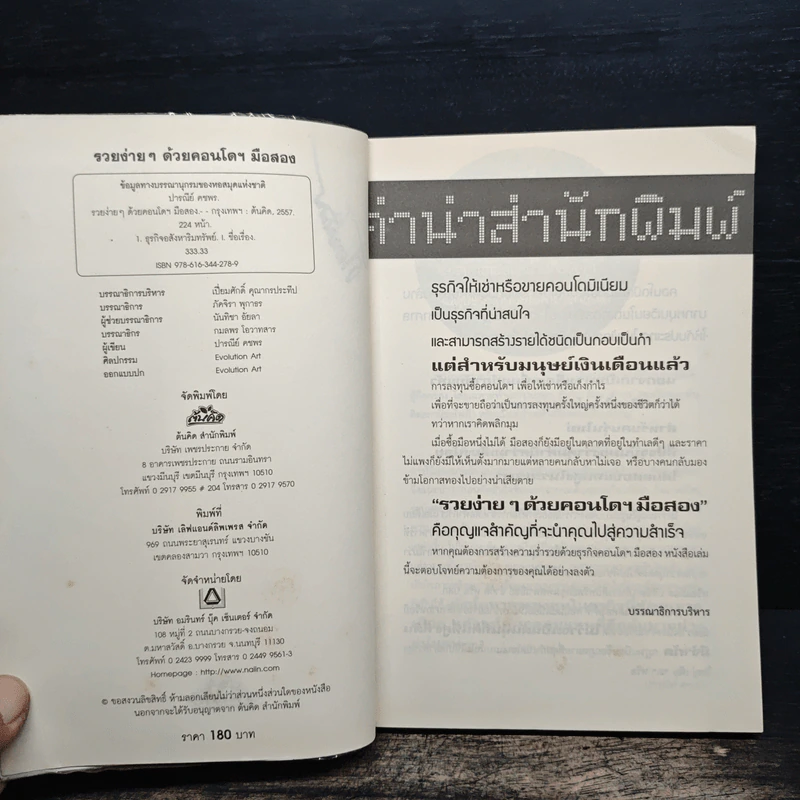 รวยง่าย ๆ ด้วยคอนโดฯ มือสอง
ข้อมูลทางบรรณานุกรมของหอสมุดแห่งชาติ
ปารณีย์ คชพร.
รวยง่าย ๆ ด้วยคอนโดฯ มือสอง.- - กรุงเทพฯ : ต้นคิด, 2557.
224 หน้า.
1. ธุรกิจอสังหาริมทรัพย์. I. ชื่อเรื่อง.
333.33
ISBN 978-616-344-278-9
บรรณาธิการบริหาร เปี่ยมศักดิ์ คุณากรประทีป
บรรณาธิการ ภัคจิรา พุกาธร
ผู้ช่วยบรรณาธิการ นันทิชา อัยลา
บรรณาธิกร กมลพร โอวาทสาร
ผู้เขียน ปารณีย์ คชพร
ศิลปกรรม Evolution Art
ออกแบบปก Evolution Art
จัดพิมพ์โดย
ต้นคิด
ต้นคิด สำนักพิมพ์
บริษัท เพชรประกาย จำกัด
8 อาคารเพชรประกาย ถนนรามอินทรา
แขวงมีนบุรี เขตมีนบุรี กรุงเทพฯ 10510
โทรศัพท์ 0 2917 9955 # 204 โทรสาร 0 2917 9570
พิมพ์ที่
บริษัท เลิฟแอนด์ลิพเพรส จำกัด
969 ถนนพระยาสุเรนทร์ แขวงบางชัน
เขตคลองสามวา กรุงเทพฯ 10510
จัดจำหน่ายโดย
บริษัท อมรินทร์ บุ๊ค เซ็นเตอร์ จำกัด
108 หมู่ที่ 2 ถนนบางกรวย-จงถนอม
ต.มหาสวัสดิ์ อ.บางกรวย จ.นนทบุรี 11130
โทรศัพท์ 0 2423 9999 โทรสาร 0 2449 9561-3
Homepage : http://www.naiin.com
© ขอสงวนลิขสิทธิ์ ห้ามลอกเลียนไม่ว่าส่วนหนึ่งส่วนใดของหนังสือ
นอกจากจะได้รับอนุญาตจาก ต้นคิด สำนักพิมพ์
ราคา 180 บาท
คำนำสำนักพิมพ์
ธุรกิจให้เช่าหรือขายคอนโดมิเนียม
เป็นธุรกิจที่น่าสนใจ
และสามารถสร้างรายได้ชนิดเป็นกอบเป็นกำ
แต่สำหรับมนุษย์เงินเดือนแล้ว
การลงทุนซื้อคอนโดฯ เพื่อให้เช่าหรือเก็งกำไร
เพื่อที่จะขายถือว่าเป็นการลงทุนครั้งใหญ่ครั้งหนึ่งของชีวิตก็ว่าได้
ทว่าหากเราคิดพลิกมุม
เมื่อซื้อมือหนึ่งไม่ได้ มือสองก็ยังมีอยู่ในตลาดที่อยู่ในทำเลดีๆ และราคา
ไม่แพงก็ยังมีให้เห็นตั้งมากมายแต่หลายคนกลับหาไม่เจอ หรือบางคนกลับมอง
ข้ามโอกาสทองไปอย่างน่าเสียดาย
“รวยง่าย ๆ ด้วยคอนโดฯ มือสอง”
คือกุญแจสำคัญที่จะนำคุณไปสู่ความสำเร็จ
หากคุณต้องการสร้างความร่ำรวยด้วยธุรกิจคอนโดฯ มือสอง หนังสือเล่ม
นี้จะตอบโจทย์ความต้องการของคุณได้อย่างลงตัว
บรรณาธิการบริหาร